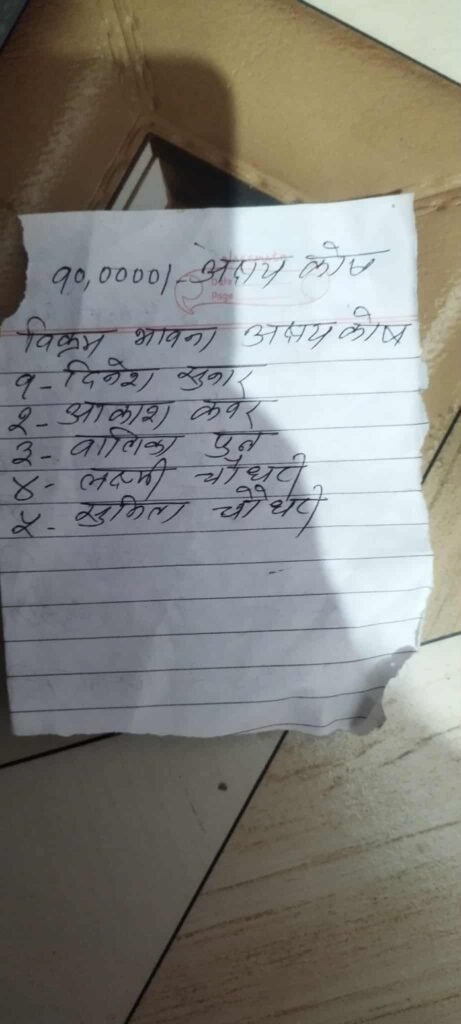 १०,००००/- अक्षय कोष
Date
Page
विक्रम भावना अक्षय कोष
१- दिनेश सुनार
२- आकाश कवर
३- वालिका पुन
४- लक्ष्मी चौधरी
५- सुमिता चौधरी